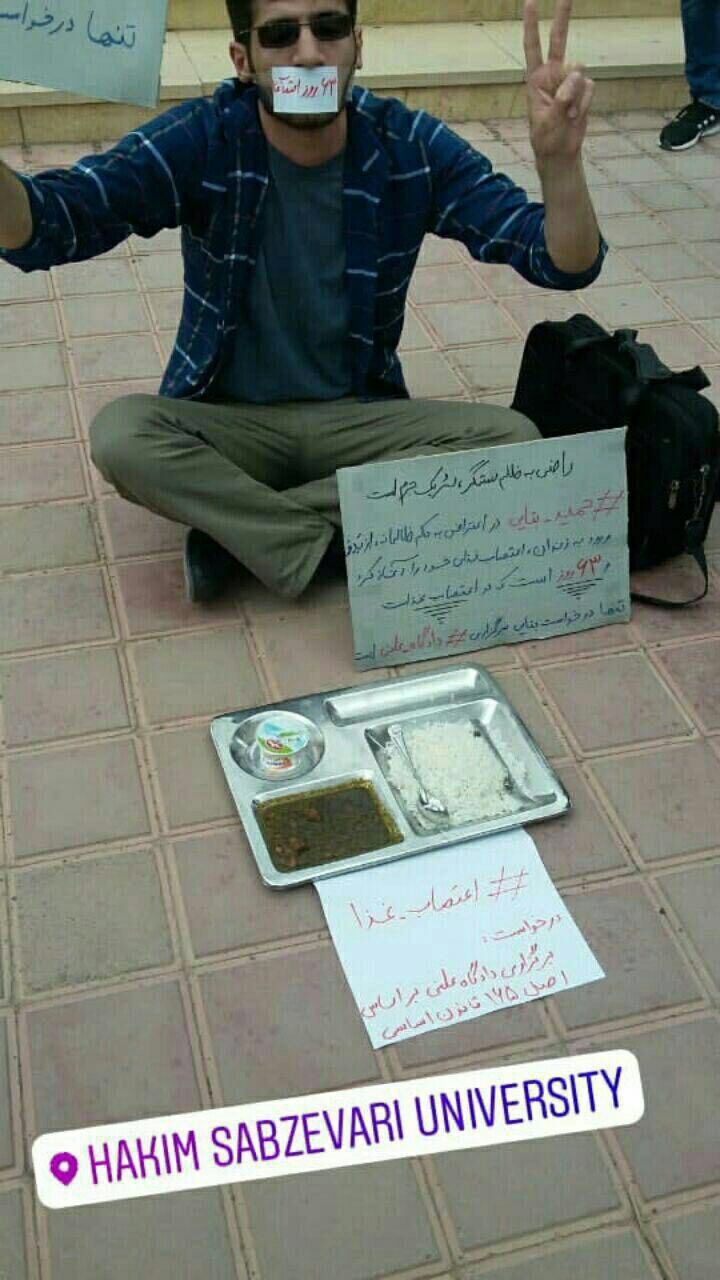 تنها درخواست
۶۳ روز اعتصاب غذا
راضی به ظلم ستمگر، شریک جرم است
#حمید_بقایی در اعتراض به حکم ظالمانه، از بدو
ورود به زندان، اعتصاب غذای خود را آغاز کرد
و ۶۳ روز است که در اعتصاب غذاست
تنها درخواست بقایی برگزاری #دادگاه_علنی است
#اعتصاب_غذا
درخواست:
برگزاری دادگاه علنی بر اساس
اصل ۱۶۵ قانون اساسی
HAKIM SABZEVARI UNIVERSITY